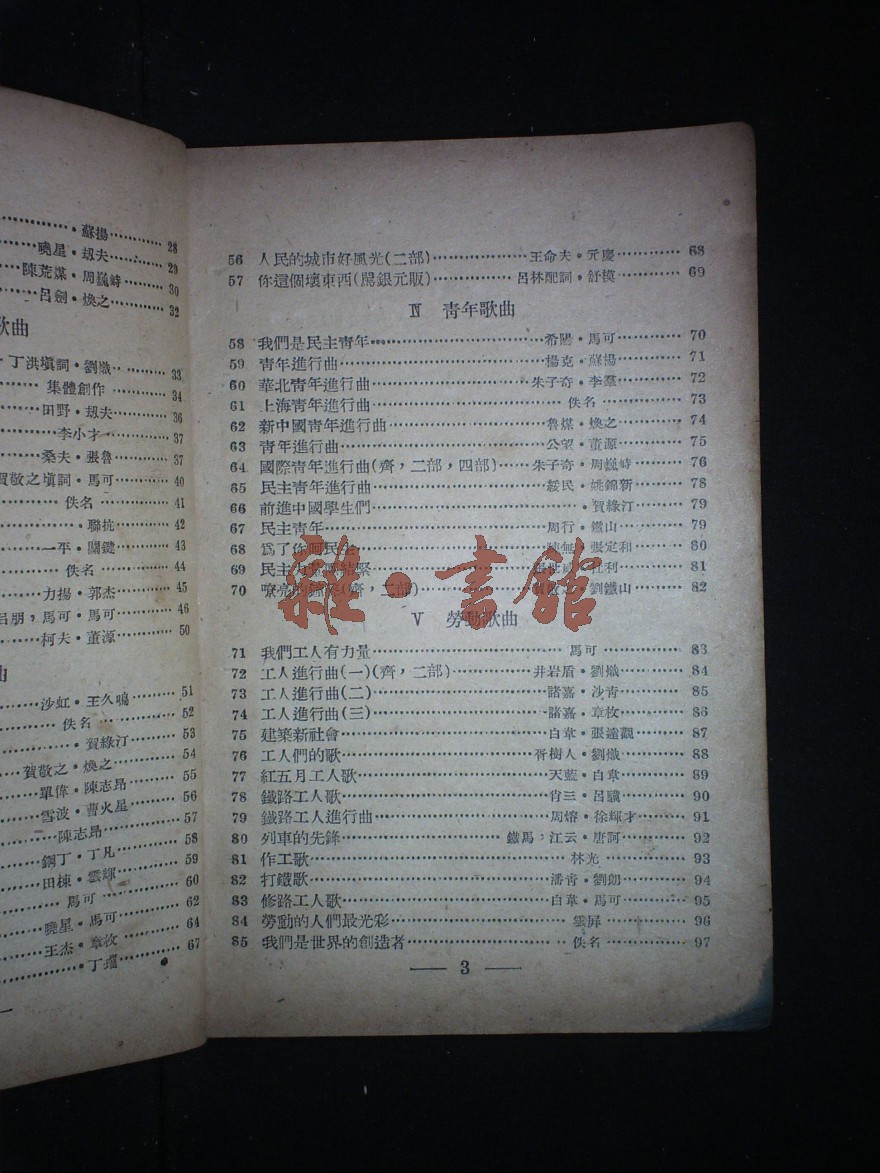 蘇揚 28
曉星・劫夫 29
陳荒煤・周巍峙 30
呂劍・煥之 32
歌曲
丁洪塡詞・劉熾 33
集體創作 34
田野・劫夫 36
李小才 37
桑夫・張魯 37
賀敬之塡詞・馬可 40
佚名 41
聯抗 42
一平・關鍵 43
佚名 44
力揚・郭杰 45
呂朋，馬可・馬可 46
柯夫・董源 50
曲
沙虹・王久鳴 51
佚名 52
賀綠汀 53
賀敬之・煥之 54
單偉・陳志昂 55
雪波・曹火星 56
陳志昂 57
鋼丁・丁凡 58
田棟・雲輝 59
馬可 60
曉星・馬可 62
王杰・章枚 64
丁瑠 67
56 人民的城市好風光(二部) 王命夫・元慶 68
57 你這個壞東西(駡銀元販) 呂林配詞・舒模 69
Ⅳ 靑年歌曲
58 我們是民主靑年 希陽・馬可 70
59 靑年進行曲 楊克・蘇揚 71
60 華北靑年進行曲 朱子奇・李羣 72
61 上海靑年進行曲 佚名 73
62 新中國靑年進行曲 魯煤・煥之 74
63 靑年進行曲 公望・董源 75
64 國際靑年進行曲(齊，二部，四部) 朱子奇・周巍峙 76
65 民主靑年進行曲 綏民・姚錦新 78
66 前進中國學生們 賀綠汀 79
67 民主靑年 周行・鐵山 79
68 爲了你呵民主 陳無・張定利 80
69 民主 緊 利 81
70 嘹亮的 (齊，二部) 賀敬之・劉鐵山 82
雜・書館
Ⅴ 勞動歌曲
71 我們工人有力量 馬可 83
72 工人進行曲(一)(齊，二部) 井岩盾・劉熾 84
73 工人進行曲(二) 諸嘉・沙靑 85
74 工人進行曲(三) 諸嘉・章枚 86
75 建築新社會 白韋・張達觀 87
76 工人們的歌 胥樹人・劉熾 88
77 紅五月工人歌 天藍・白韋 89
78 鐵路工人歌 肖三・呂驥 90
79 鐵路工人進行曲 周熔・徐輝才 91
80 列車的先鋒 鐵馬，江云・唐訶 92
81 作工歌 林光 93
82 打鐵歌 潘靑・劉朗 94
83 修路工人歌 白韋・馬可 95
84 勞動的人們最光彩 雲屛 96
85 我們是世界的創造者 佚名 97
— 3 —